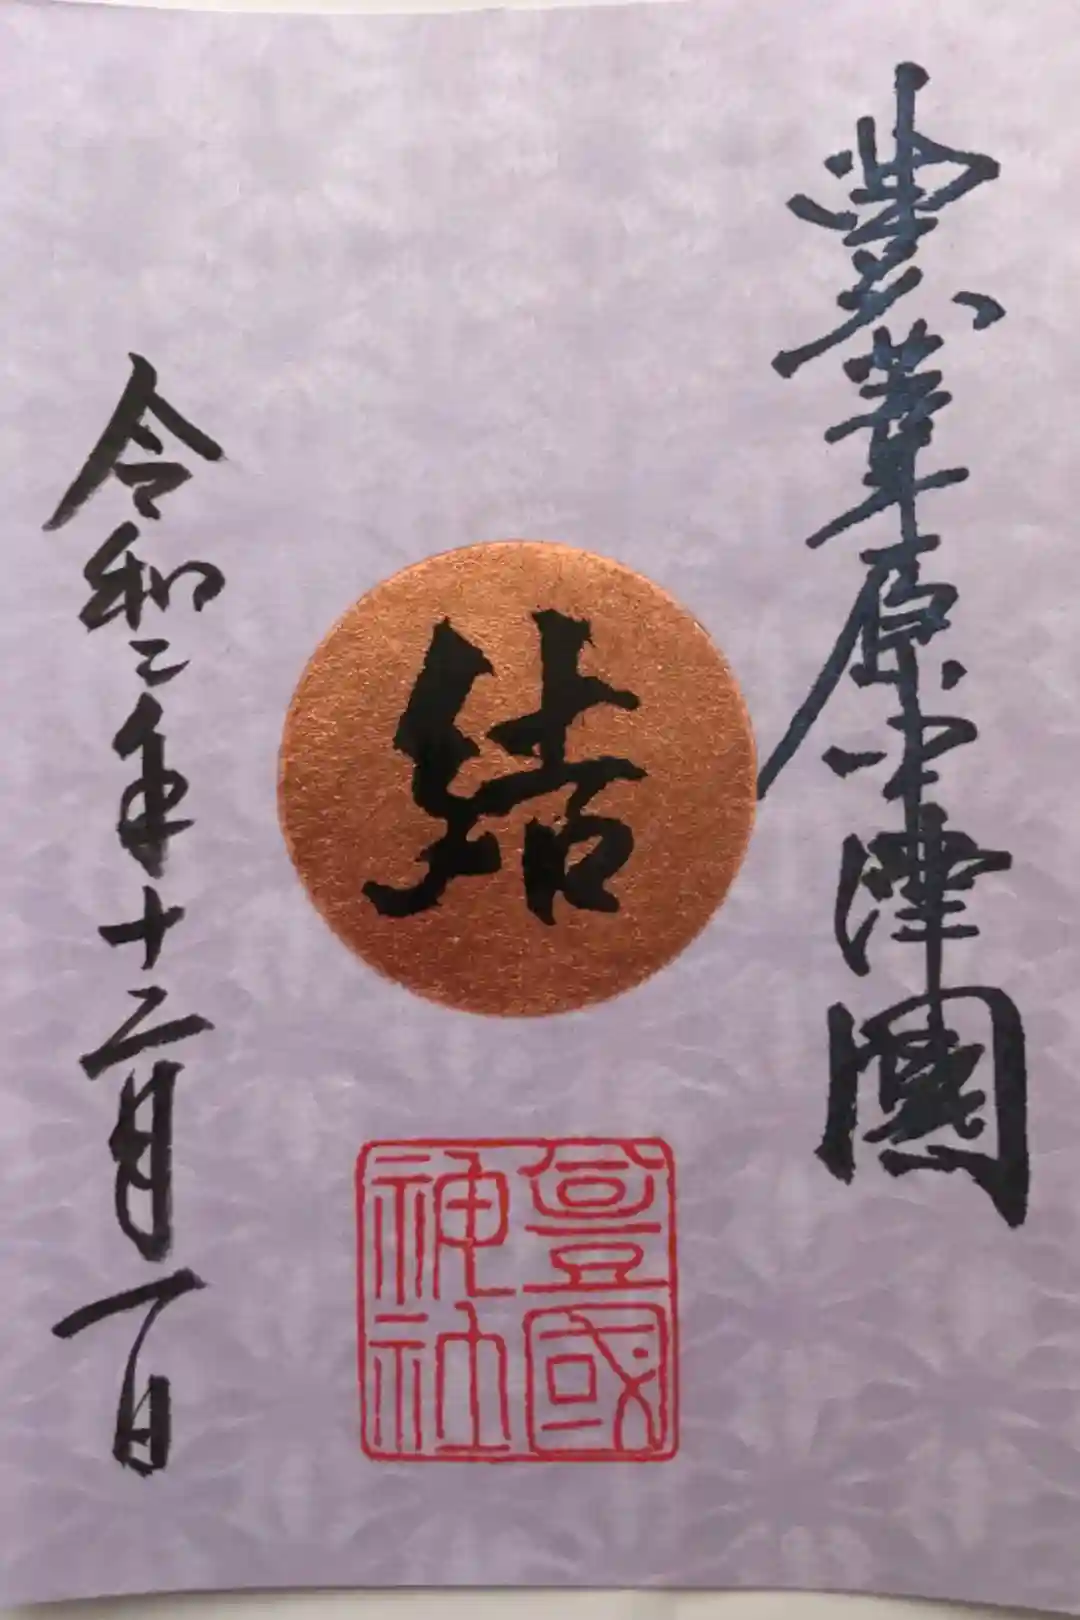 豊葦原中津國
結
豊國神社
令和二年十二月一日